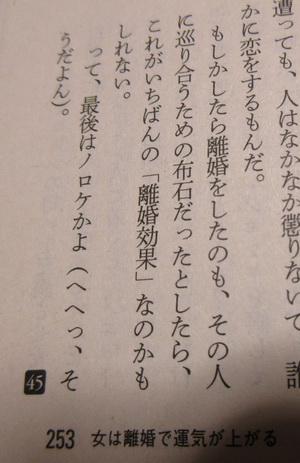 遭っても、人はなかなか懲りないで、誰
かに恋をするもんだ。
もしかしたら離婚をしたのも、その人
に巡り合うための布石だったとしたら、
これがいちばんの「離婚効果」なのかも
しれない。
って、最後はノロケかよ（へへっ、そ
うだよん）。
45
253 女は離婚で運気が上がる